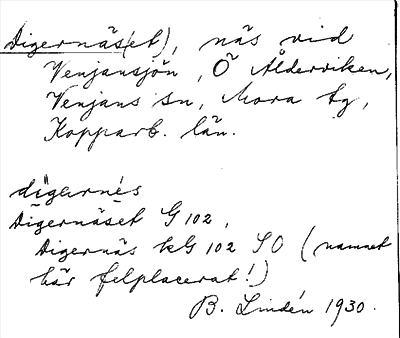 Digernäs(et), näs vid
Venjansjön, Ö Ålderviken,
Venjans sn, Mora tg,
Kopparb. län.
dı̈garnés
Digernäset G 102,
Digernäs kG 102 SO (namnet
här felplacerat!)
B. Lindén 1930.